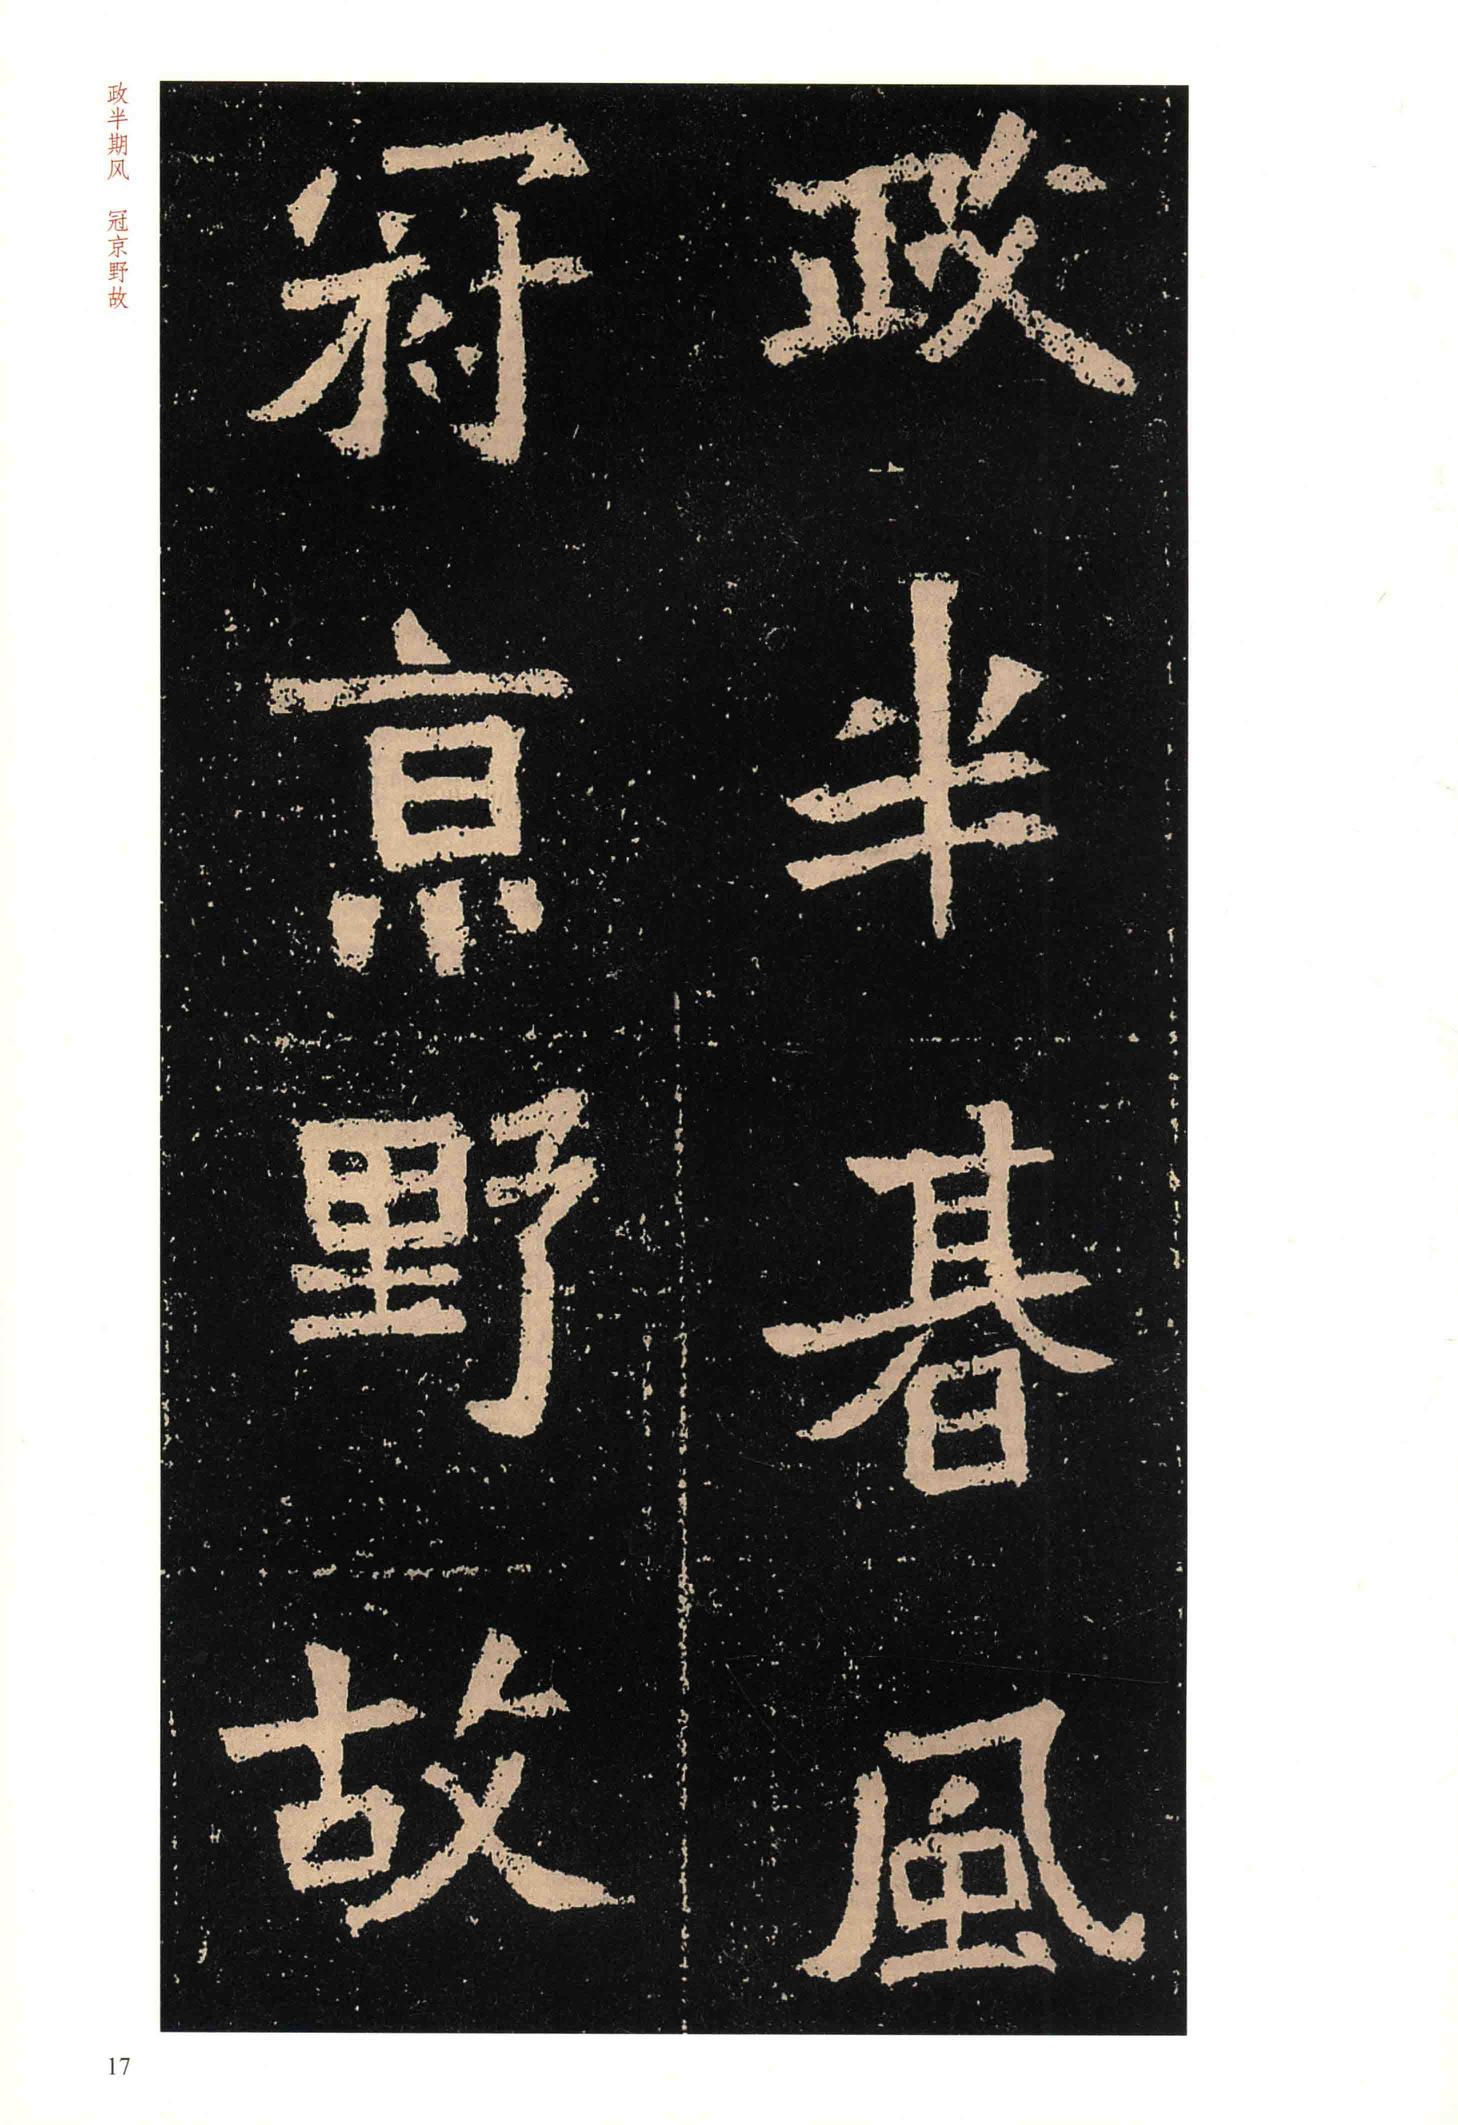 政半朞風
冠京野故
政半期风　冠京野故
17